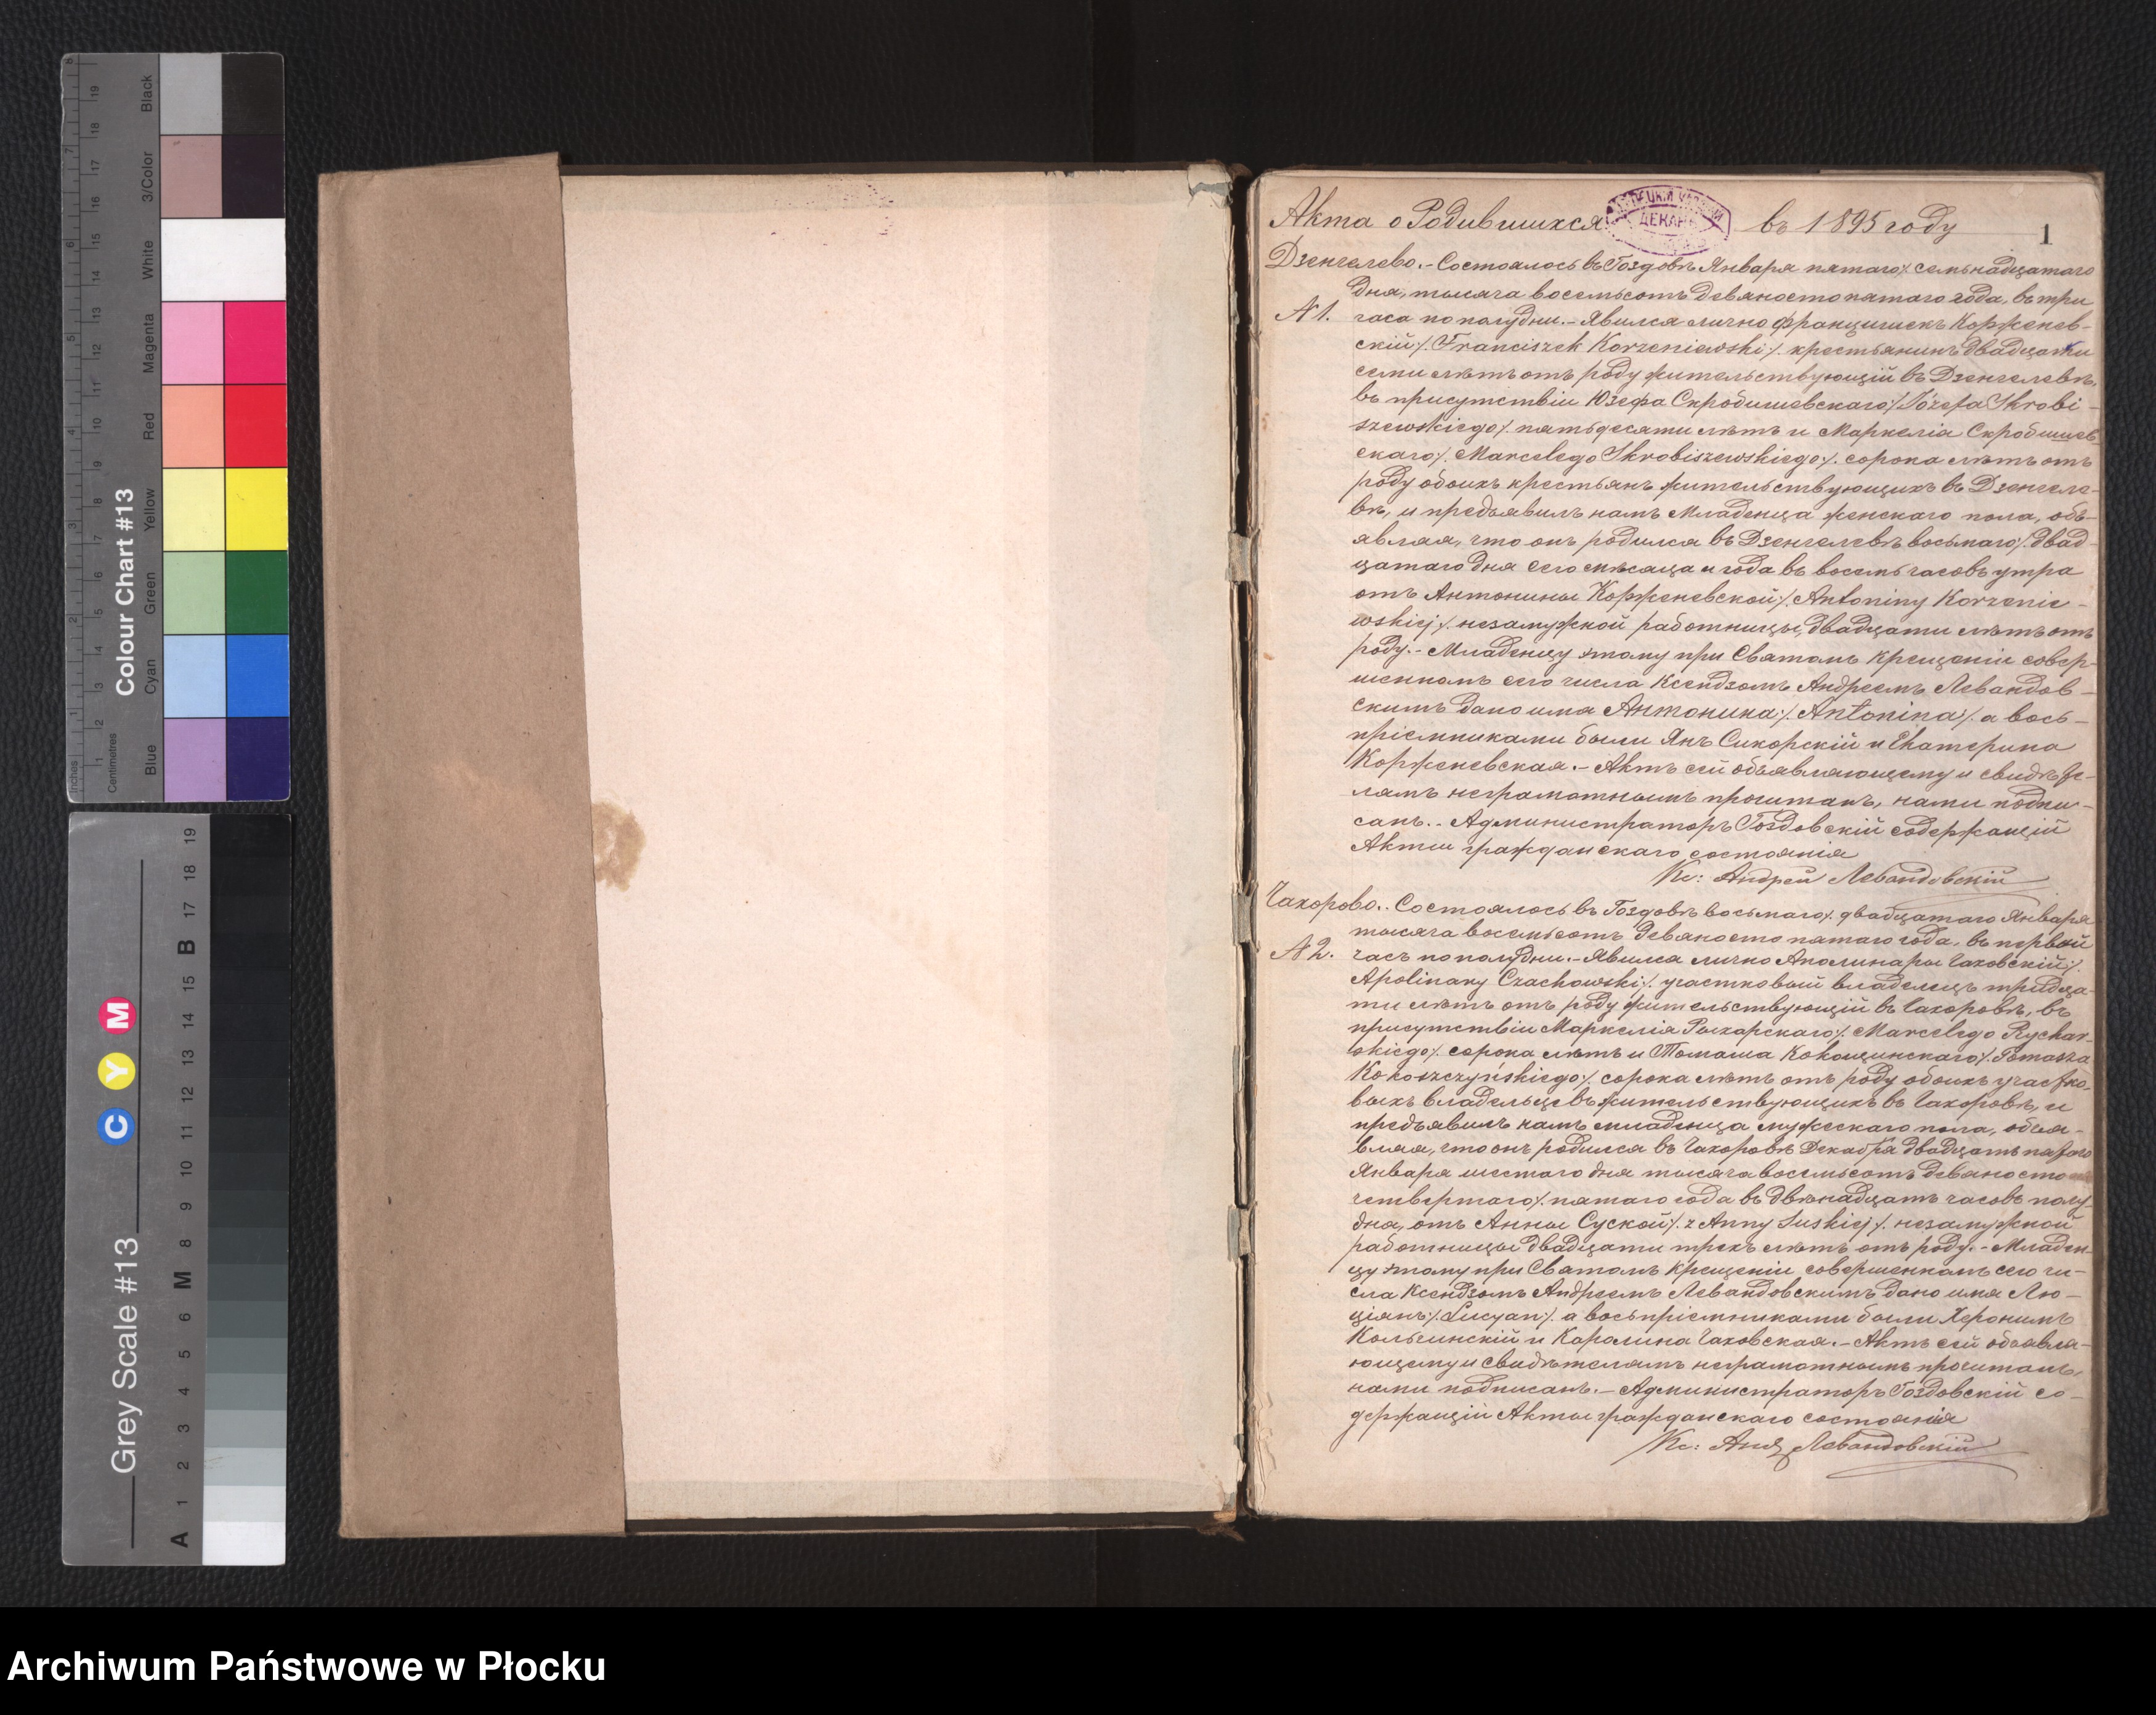 Colour Chart #13
Black
3/Color
White
Magenta
Red
Yellow
Green
Cyan
Blue
Inches
Centimetres
Grey Scale #13
C Y M
A 1 2 3 4 5 6 M 8 9 10 11 12 13 14 15 B 17 18 19
Акта о Родившихся въ 1895 году
ДЕКАНЪ
1
Дзенгелево.- Состоялось въ Гоздовѣ Января пятаго/ семьнадцатаго
дня, тысяча восемьсотъ девяносто пятаго года, въ три
N 1. часа по полудни.- Явился лично Францишекъ Корженев-
скій/. Franciszek Korzeniewski/. крестьянинъ двадцати
семи лѣтъ отъ роду жительствующій въ Дзенгелевѣ,
въ присутствіи Юзефа Скробишевскаго/. Józefa Skrobi-
szewskiego/. пятьдесяти лѣтъ и Маркелія Скробишев
скаго/. Marcelego Skrobiszewskiego/. сорока лѣтъ отъ
роду обоихъ крестьянъ жительствующихъ въ Дзенгеле-
вѣ, и предъявилъ намъ младенца женскаго пола, объ-
являя, что онъ родился въ Дзенгелевѣ восьмаго/. двад-
цатаго дня сего мѣсяца и года въ восемь часовъ утра
отъ Антонины Корженевской/. Antoniny Korzenie-
wskiej/. незамужной работницы, двадцати лѣтъ отъ
роду.- Младенцу этому при Святомъ Крещеніи совер-
шенномъ сего числа Ксендзомъ Андреемъ Левандов-
скимъ дано имя Антонина/. Antonina/. а вось-
пріемниками были Янъ Сикорскій и Екатерина
Корженевская.- Актъ сей объявляющему и свидѣте-
лямъ неграмотнымъ прочитанъ, нами подпи-
санъ.- Администраторъ Гоздовскій содержащій
Акты гражданскаго состоянія
Кс: Андрей Левандовскій
Чахорово.. Состоялось въ Гоздовѣ восьмаго/. двадцатаго Января
тысяча восемьсотъ девяносто пятаго года, въ первой
N 2. часъ по полудни.- Явился лично Аполинары Чаховскій/.
Apolinary Czachowski/. участковый владелецъ тридца-
ти лѣтъ отъ роду жительствующій въ Чахоровѣ, въ
присутствіи Маркелія Рыхарскаго/. Marcelego Rychar-
skiego/. сорока лѣтъ и Томаша Кокощинскаго/. Tomasza
Kokoszczyńskiego/. сорока лѣтъ отъ роду обоихъ участко-
выхъ владельцевъ жительствующихъ въ Чахоровѣ, и
предъявилъ намъ младенца мужескаго пола, объя-
вляя, что онъ родился въ Чахоровѣ Декабря двадцать пятаго
Января шестаго дня тысяча восемьсотъ девяносто
четвертаго/. пятаго года въ двѣнадцать часовъ полу-
дня, отъ Анны Суской/. z Anny Suskiej/. незамужной
работницы двадцати трехъ лѣтъ отъ роду.- Младен-
цу этому при Святомъ Крещеніи совершенномъ сего чи-
сла Ксендзомъ Андреемъ Левандовскимъ дано имя Лю-
ціянъ/. Lucyan/. а воспріемниками были Херонимъ
Кольчинскій и Каролина Чаховская.- Актъ сей объявля-
ющему и свидѣтелямъ неграмотнымъ прочитанъ,
нами подписанъ.- Администраторъ Гоздовскій со-
держащій Акты гражданскаго состоянія
Кс: Анд Левандовскій
Archiwum Państwowe w Płocku